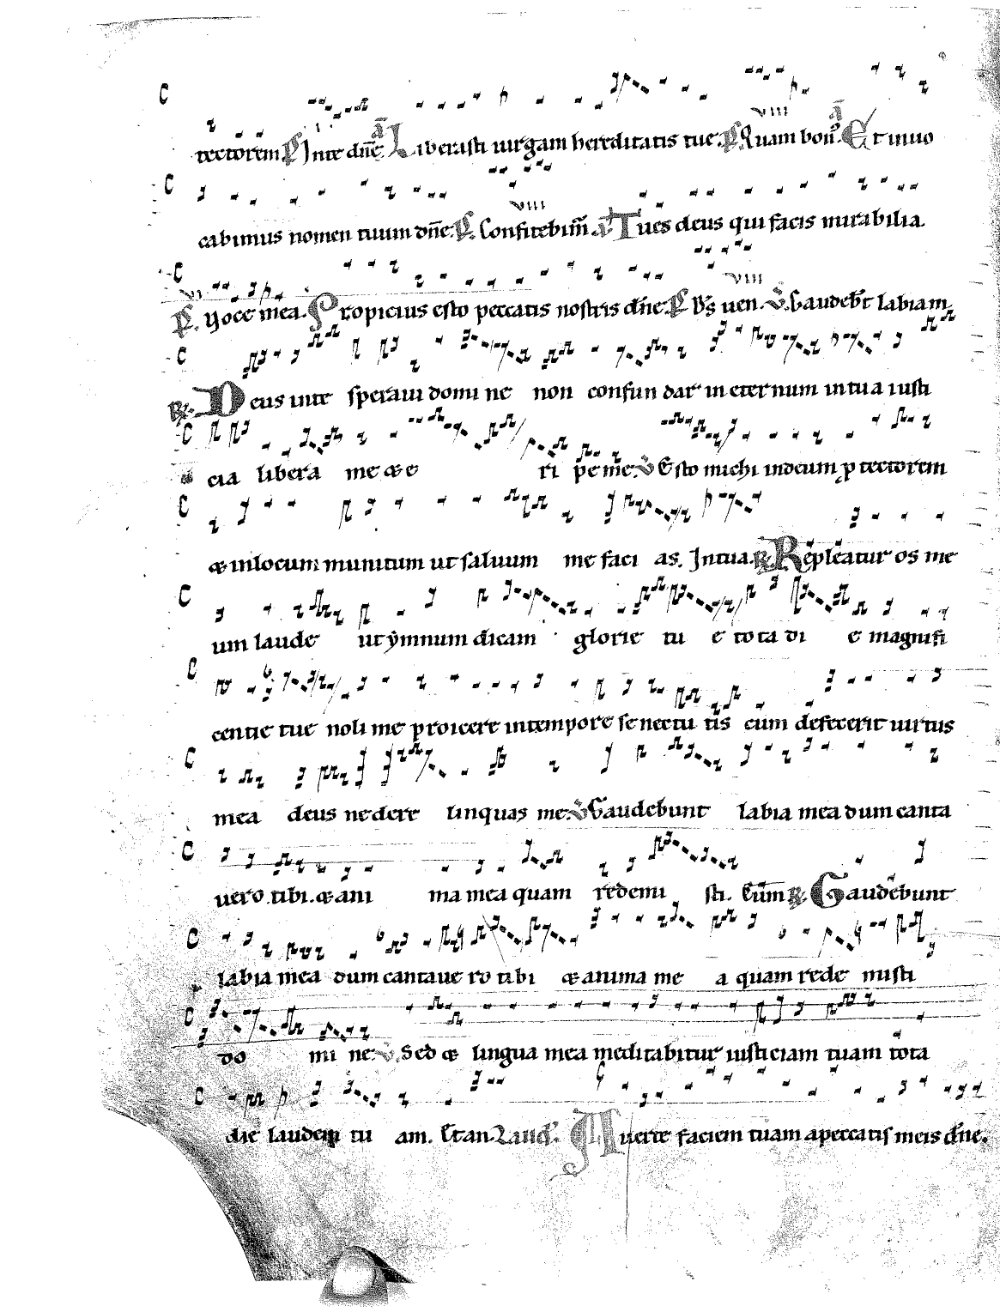 tectorem. P̸. Inte dn̄e. a̅ Liberasti uirgam hereditatis tue. P̸. Quam bon᷒. viii a̅ Et inuo
cabimus nomen tuum dn̄e. P̸. Confitebim̄. viii a̅ Tu es deus qui facis mirabilia.
P̸. vi Voce mea. Propicius esto peccatis nostris dn̄e. P̸. viii V̸. Gaudeb̄t labia m
R̸. Deus inte speraui domi ne non confun dar in eter num intu a iusti
cia libera me & e ri pe me. V̸ Esto michi indeum ꝓ tectorem
& inlocum munitum ut saluum me faci as. Intua. R̸. Repleatur os me
um laude ut ymnum dicam glorie tu e to ta di e magnifi
centie tue noli me proicere intempore senectu tis cum defecerit uirtus
mea deus nedere linquas me. V̸ Gaudebunt labia mea dum canta
uero.tibi.& ani ma mea quam redemi sti. Cum̄ R̸. Gaudebunt
labia mea dum cantaue ro tibi & anima me a quam rede misti
do mi ne. V̸. Sed & lingua mea meditabitur iusticiam tuam tota
die laudem tu am. Auerte faciem tuam apeccatis meis dn̄e.